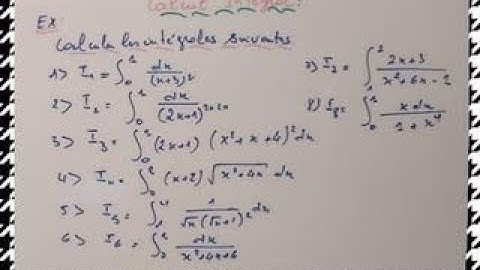 Calcul intégral:
EX
Calcula les intégrales suivantes
1) I₁ = ∫₀¹ dx/(x+3)²
2) I₂ = ∫₀¹ dx/(2x+1)
3) I₃ = ∫₀¹ (2x+1) (x²+x+4)² dx
4) I₄ = ∫₀² (x+2) √(x²+4x) dx
5) I₅ = ∫₁⁴ 1/(√x(√x+1)²) dx
6) I₆ = ∫ dx/(x²+4x+6)
7) I₇ = ∫₁² (2x+3)/(x²+6x-2)
8) I₈ = ∫₀¹ x dx/(1+x⁴)